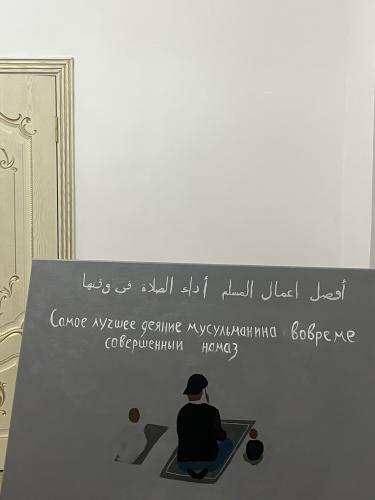 أفضل اعمال المسلم أداء الصلاة في وقتها
Самое лучшее деяние мусульманина вовреме
совершенный намаз